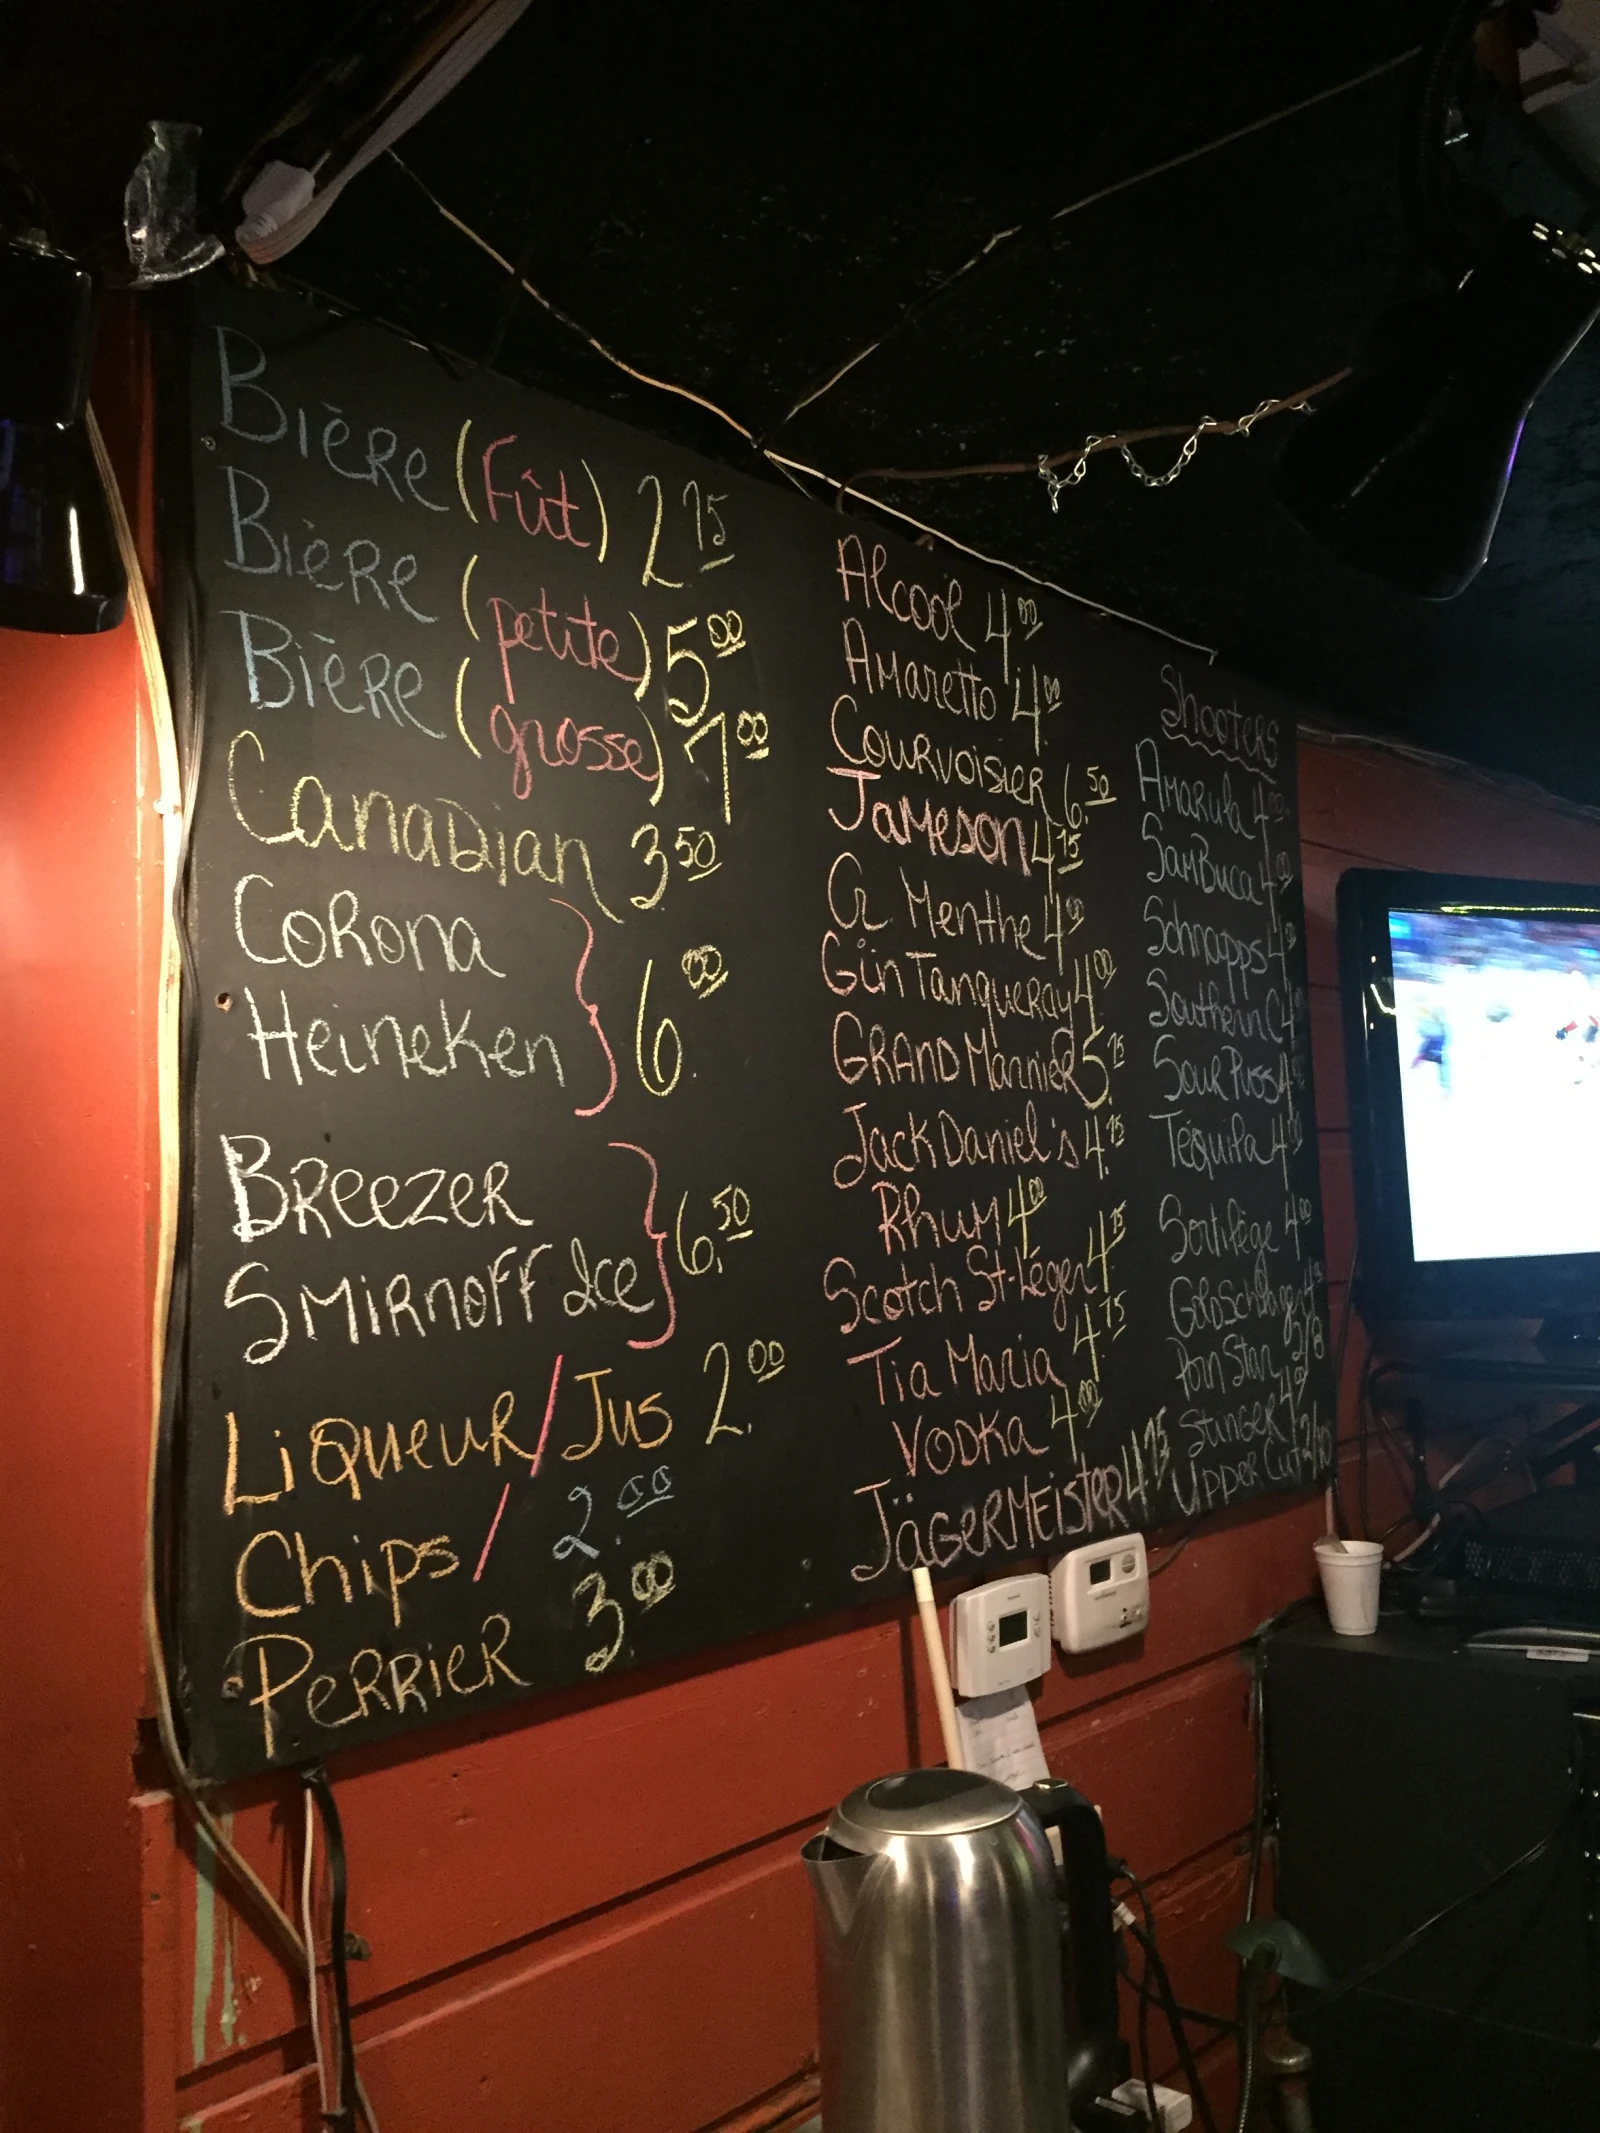 Bière (Fût) 2.75
Bière (petite) 5.00
Bière (grosse) 7.00
Canadian 3.50
Corona
Heineken
6.00
Breezer
Smirnoff Ice
6.50
Liqueur / Jus 2.00
Chips / 2.00
Perrier 3.00
Alcool 4.00
Amaretto 4.00
Courvoisier 6.50
Jameson 4.75
Cr. Menthe 4.00
Gin Tanqueray 4.00
Grand Marnier 5.75
Jack Daniel's 4.75
Rhum 4.00
Scotch St-Léger 4.75
Tia Maria 4.75
Vodka 4.00
Jägermeister 4.75
Shooters
Amarula 4.00
SamBuca 4.00
Schnapps 4
Southern C 4
Sour Puss 4
Téquila 4.00
Sortilège 4.00
Porn Star
Stinger 4
Upper Cut 2/10